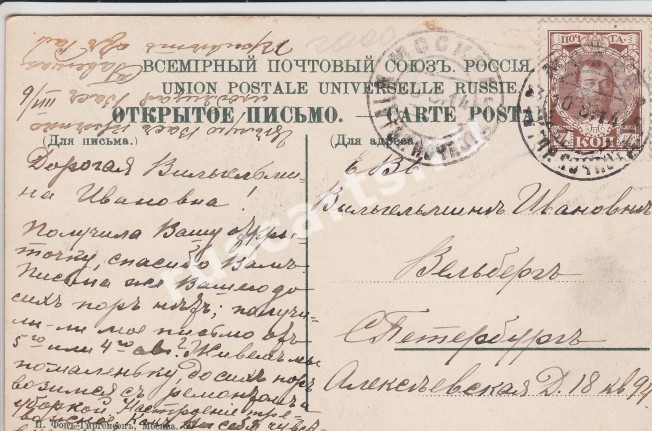 ВСЕМІРНЫЙ ПОЧТОВЫЙ СОЮЗЪ. РОССІЯ.
UNION POSTALE UNIVERSELLE RUSSIE.
ОТКРЫТОЕ ПИСЬМО. — CARTE POSTALE
(Для письма.)
(Для адреса.)
Дорогая Вильгельми-
на Ивановна!
Получила Вашу откры-
точку, спасибо Вамъ.
Письма же Вашего до
сихъ поръ нѣтъ; получи-
ли-ли мое письмо отъ
5го или 4го ав.? Живемъ мы
помаленьку, до сихъ поръ
возимся съ ремонтомъ и
уборкой. Настроеніе тре-
вожное. Какъ Вы себя чувст-
ЕВБ
Вильгельминѣ Ивановнѣ
Вельбергъ
С Петербургъ
Алексѣевская Д. 18 кв 94
П. Фонъ-Гиргенсонъ, Москва.
МОСКВА
ПОЧТА
КОП
ruscarts.ru